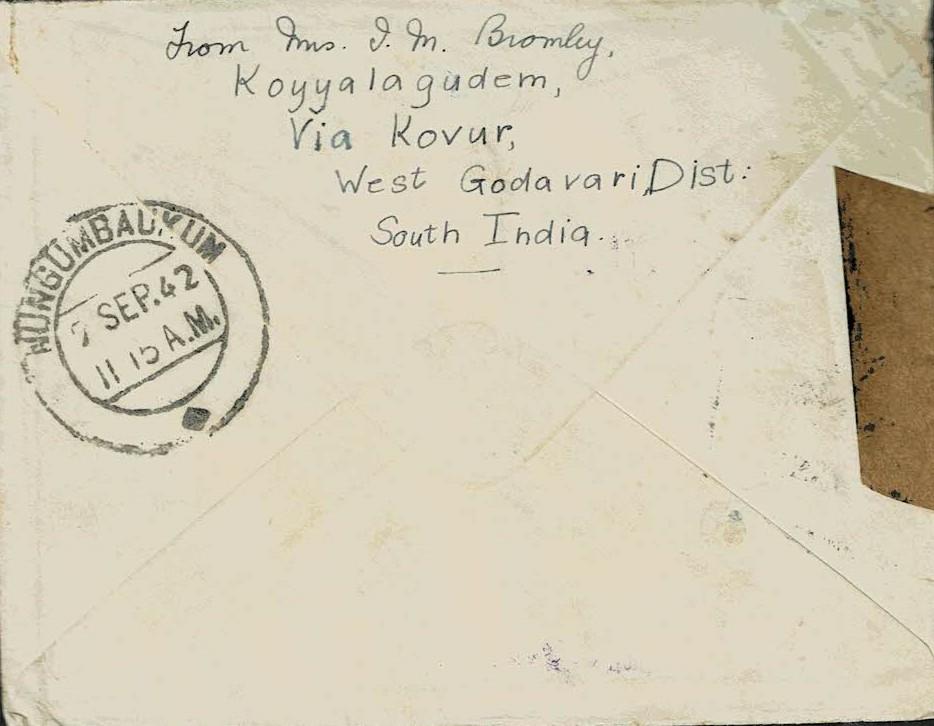 From Mrs. I. M. Bromley,
Koyyalagudem,
Via Kovur,
West Godavari, Dist:
South India.
NUNGUMBAUKUM
7 SEP. 42
11 15 A.M.